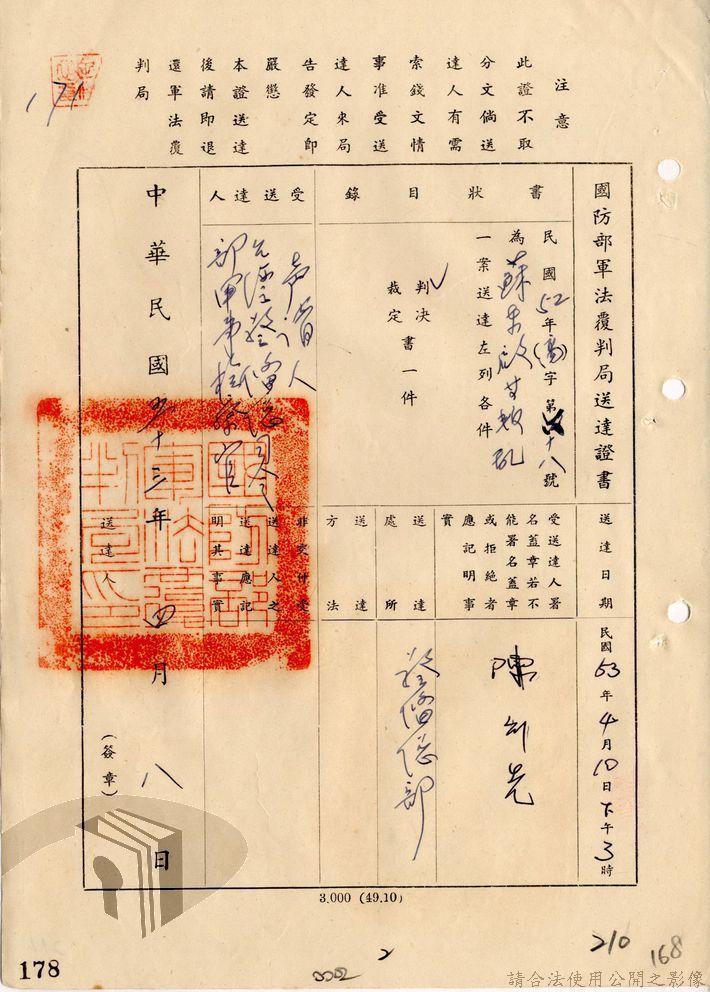 國防部軍法覆判局送達證書
送達日期
民國53年4月10日下午3時
書狀目錄
民國52年(覆高)字第十八號
為蘇東啟等叛亂
一案送達左列各件
判決
裁定
書一件
受送達人署
名蓋章若不
能署名蓋章
或拒絕者
應記明事
實
陳
先
送達處所
警備總部
送達方法
受送達人
聲請人
台灣警備總司令
部軍事檢察官
非交付受
送達人之
送達應記
明其事實
中華民國五十三年四月八日
送達人
(簽章)
注意
此證不取
分文倘送
達人有需
索錢文情
事准受送
達人來局
告發定即
嚴懲
本證送達
後請即退
還軍法覆
判局
171
3,000 (49.10)
2
210
168
178
請合法使用公開之影像